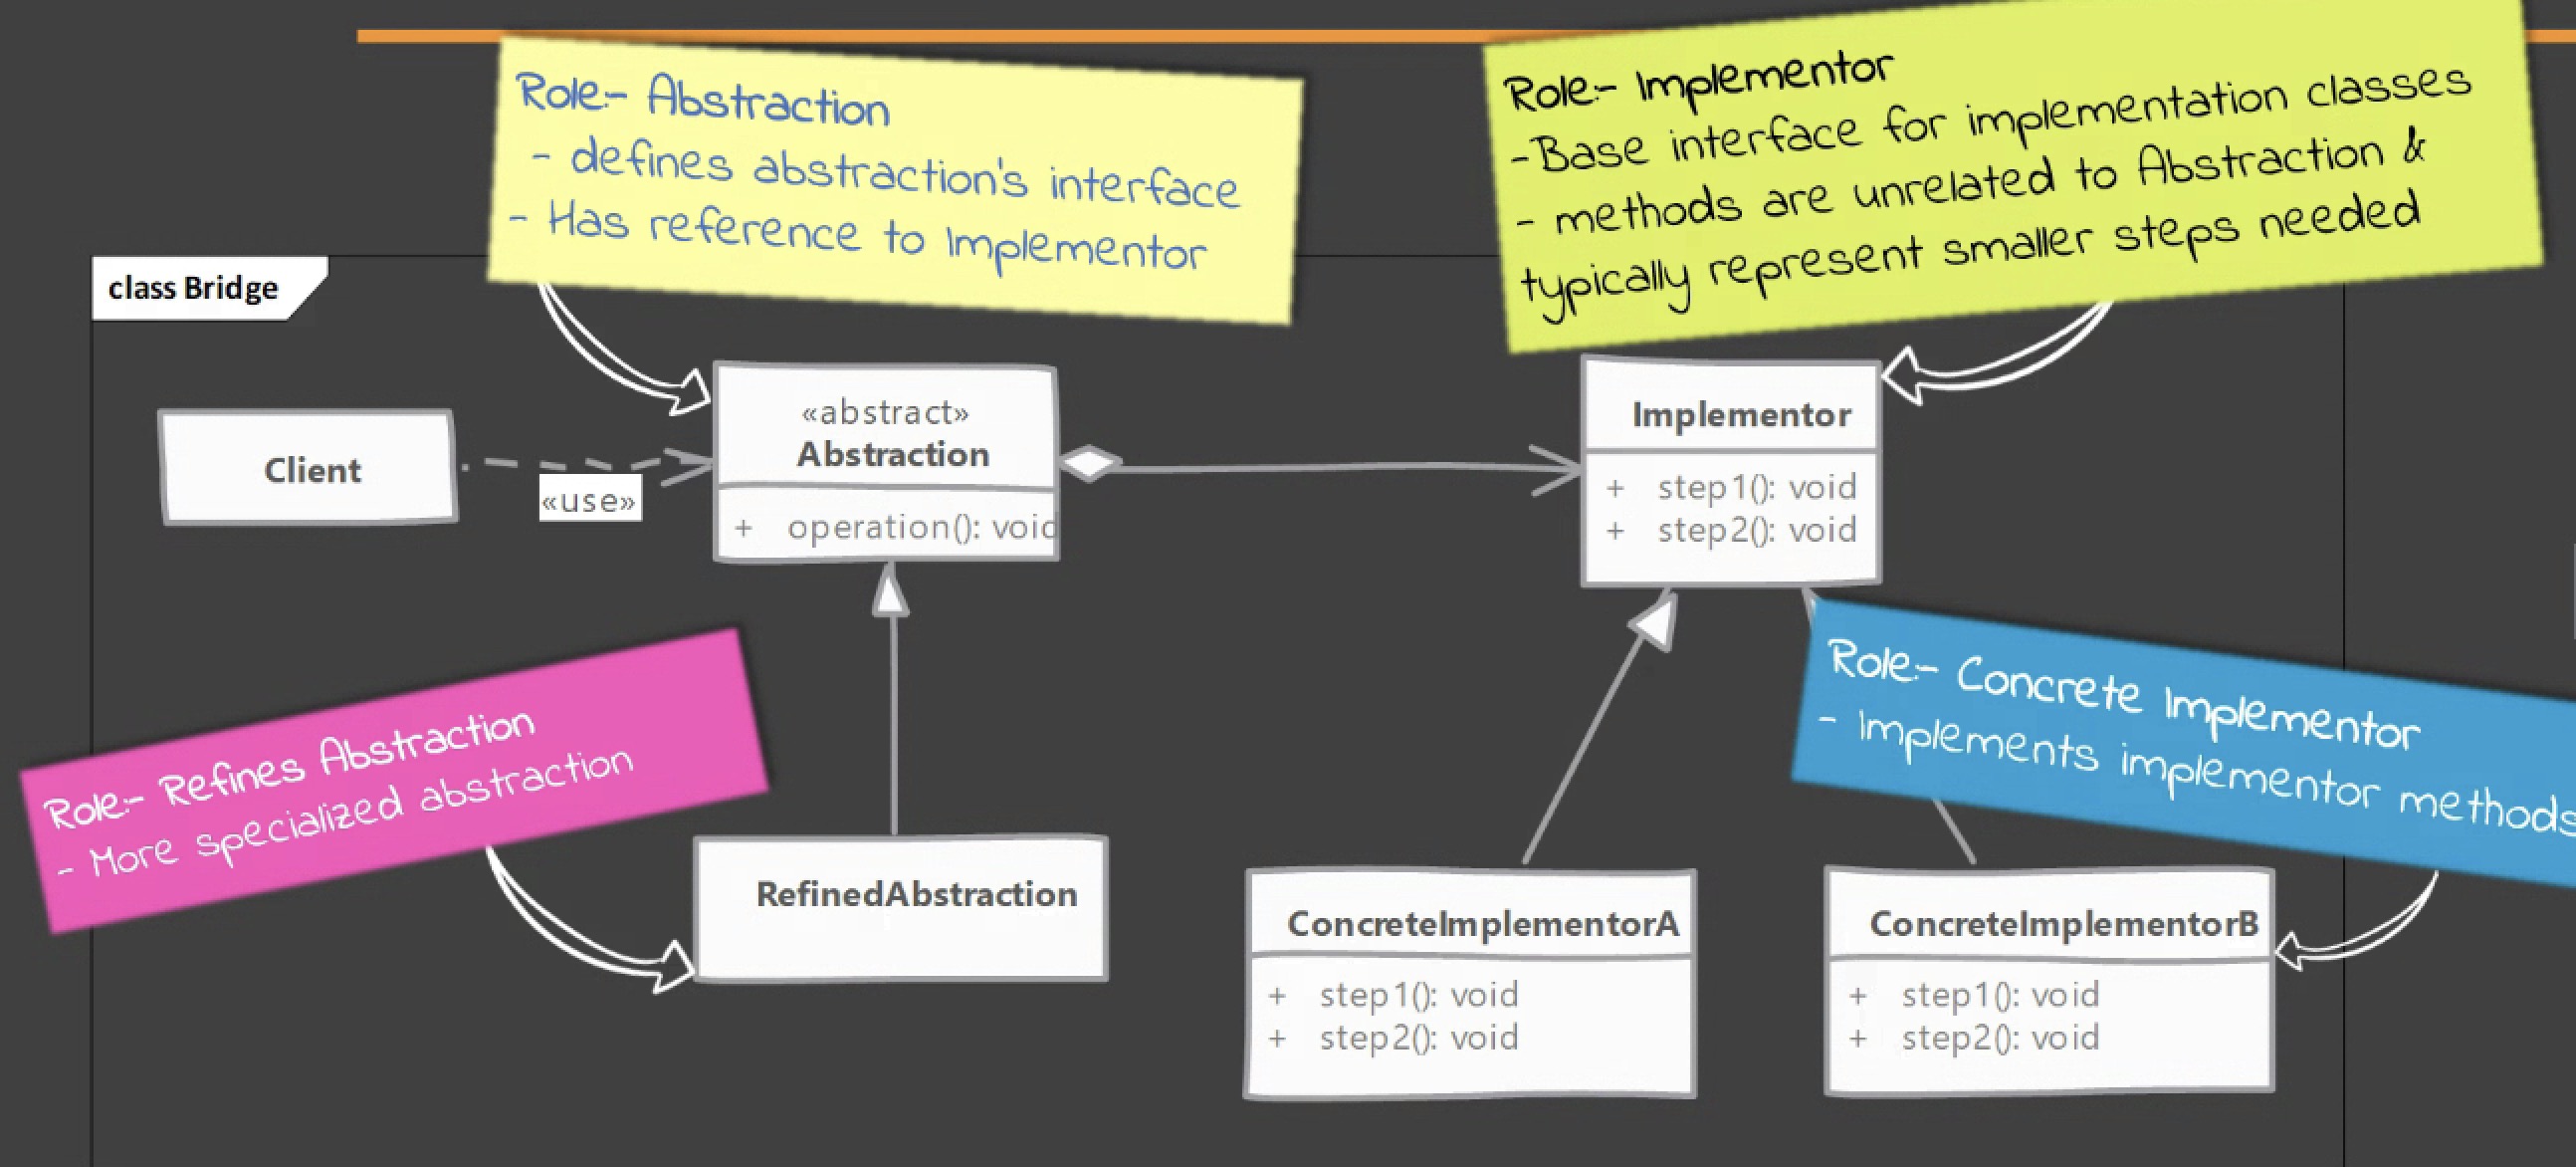 Role:- Abstraction
- defines abstraction's interface
- Has reference to Implementor
Role:- Implementor
-Base interface for implementation classes
- methods are unrelated to Abstraction &
typically represent smaller steps needed
class Bridge
Client
«use»
«abstract»
Abstraction
+ operation(): void
Implementor
+ step1(): void
+ step2(): void
Role:- Refines Abstraction
- More specialized abstraction
Role:- Concrete Implementor
- Implements implementor methods
RefinedAbstraction
ConcreteImplementorA
+ step1(): void
+ step2(): void
ConcreteImplementorB
+ step1(): void
+ step2(): void